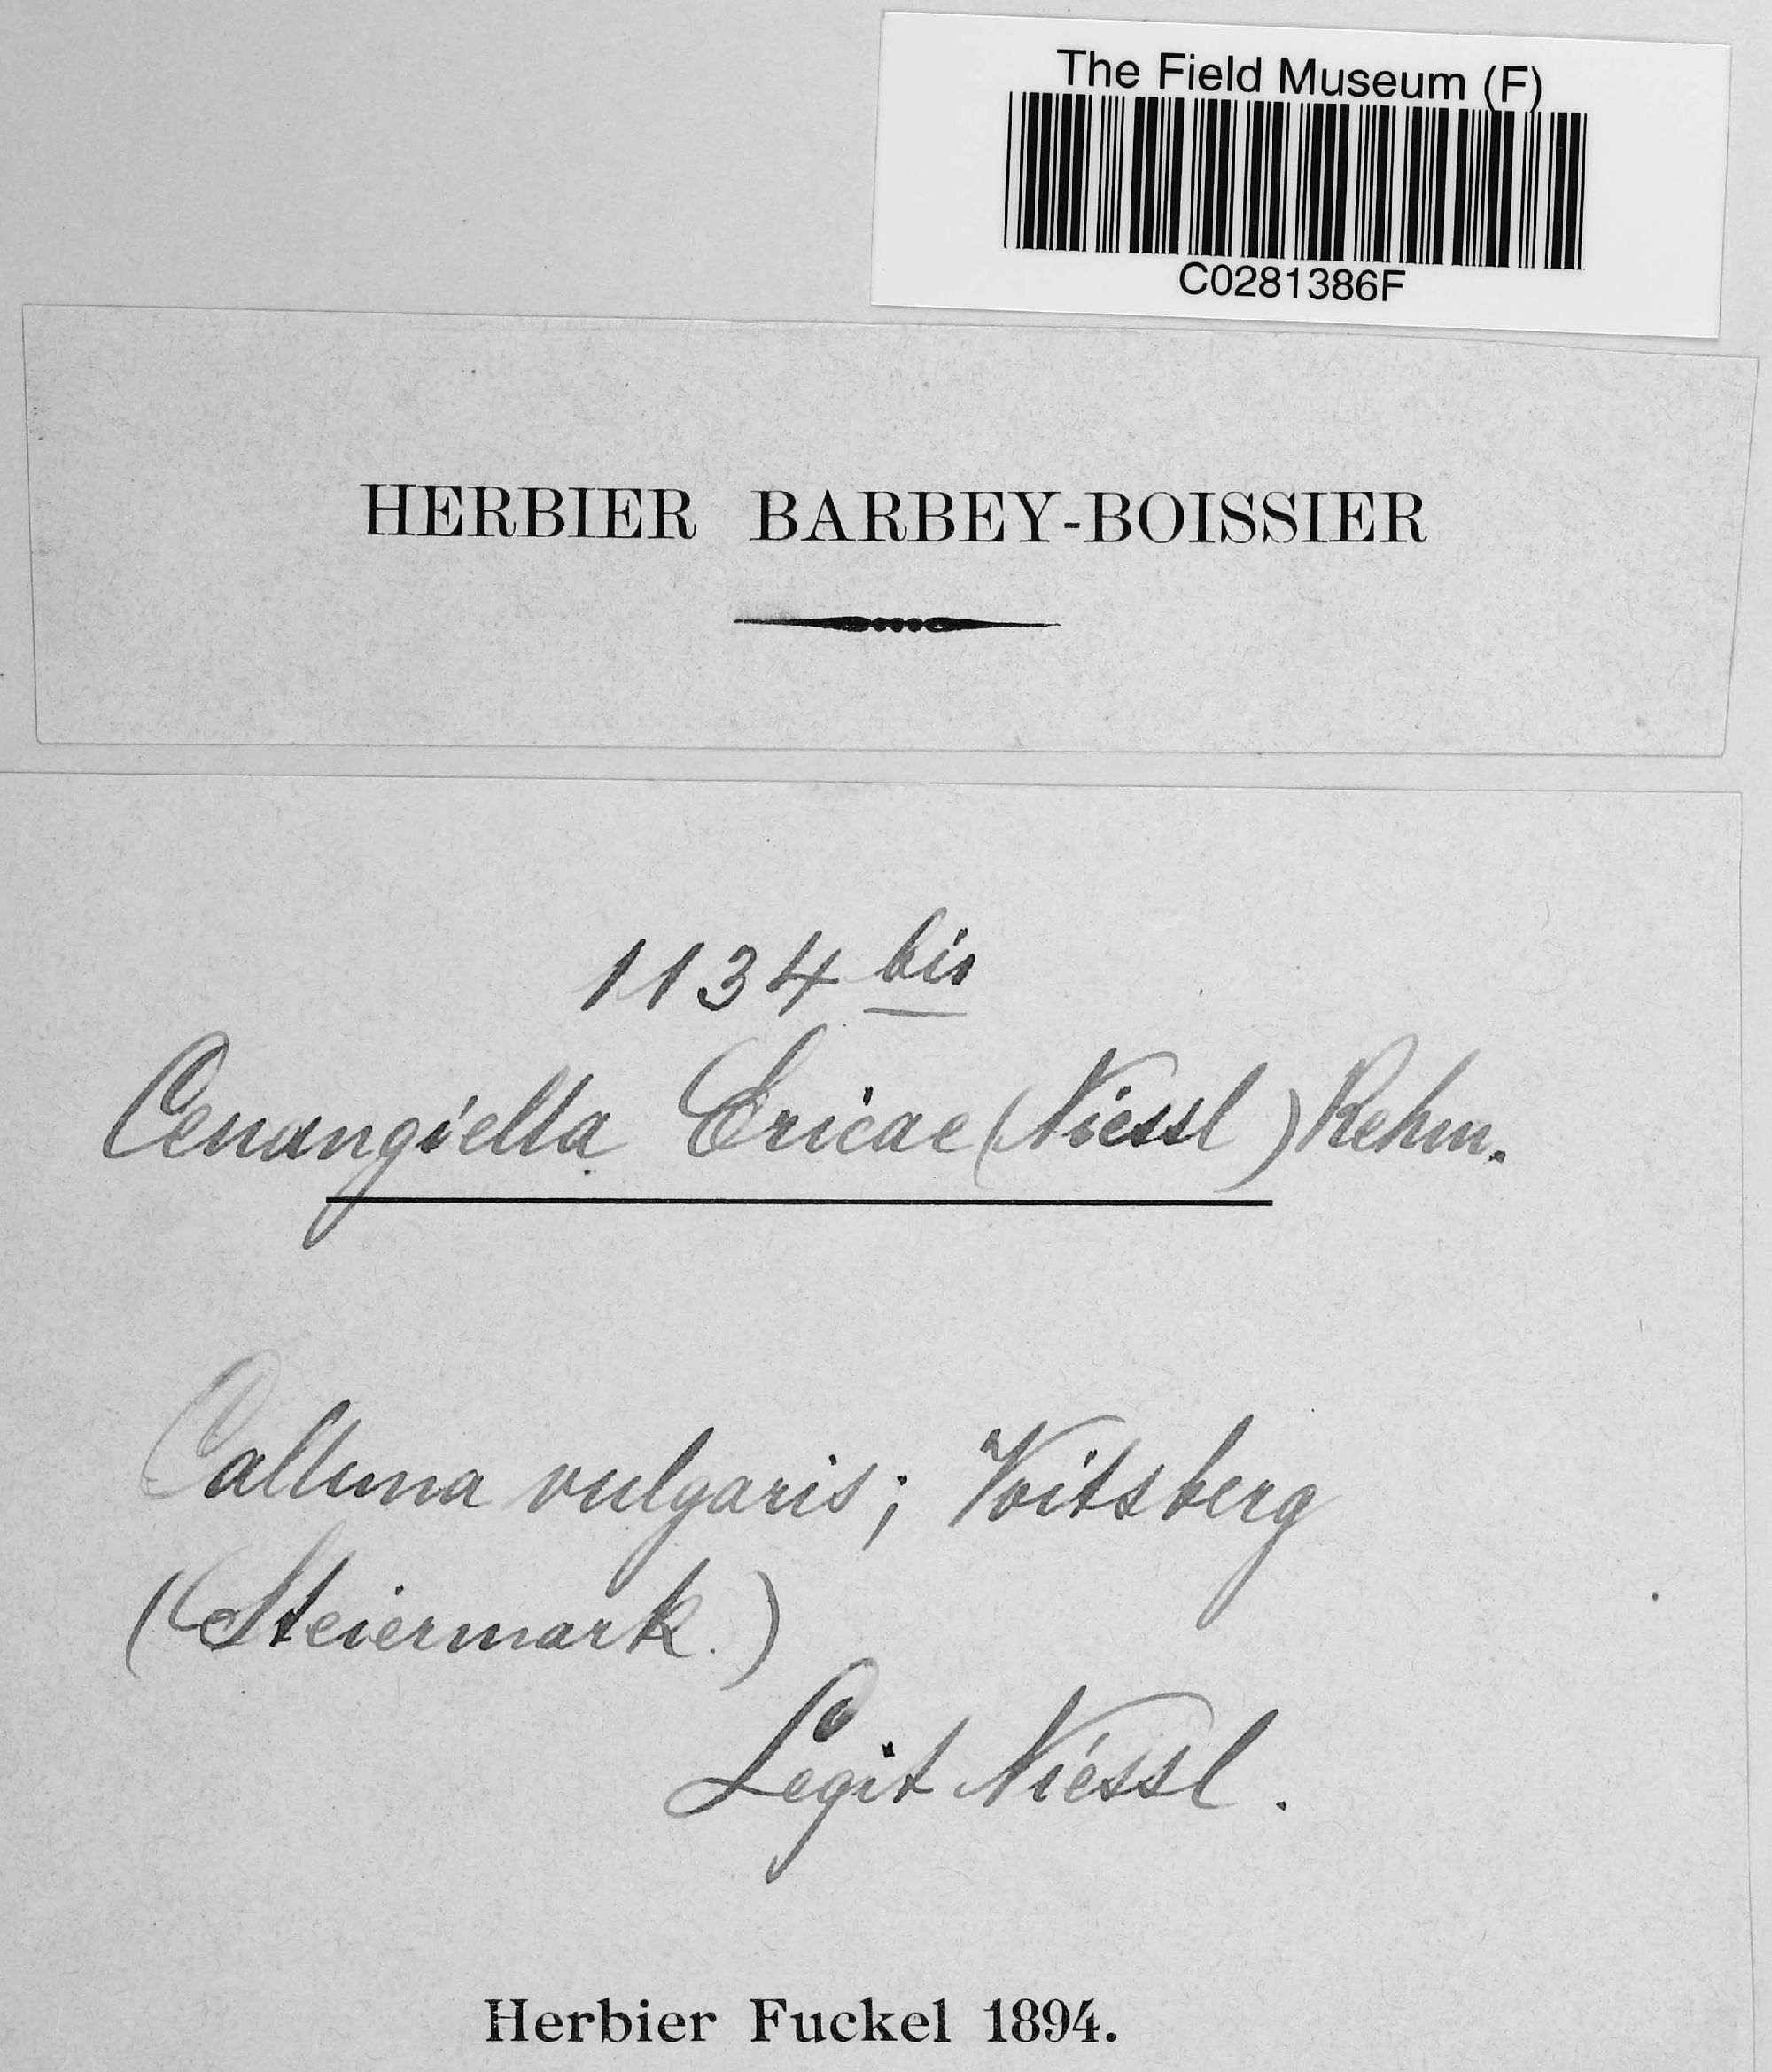 The Field Museum (F)
C0281386F
HERBIER BARBEY-BOISSIER
1134 bis
Cenangiella Ericae (Niessl) Rehm.
Calluna vulgaris; Voitsberg
(Steiermark.)
Legit Niessl.
Herbier Fuckel 1894.